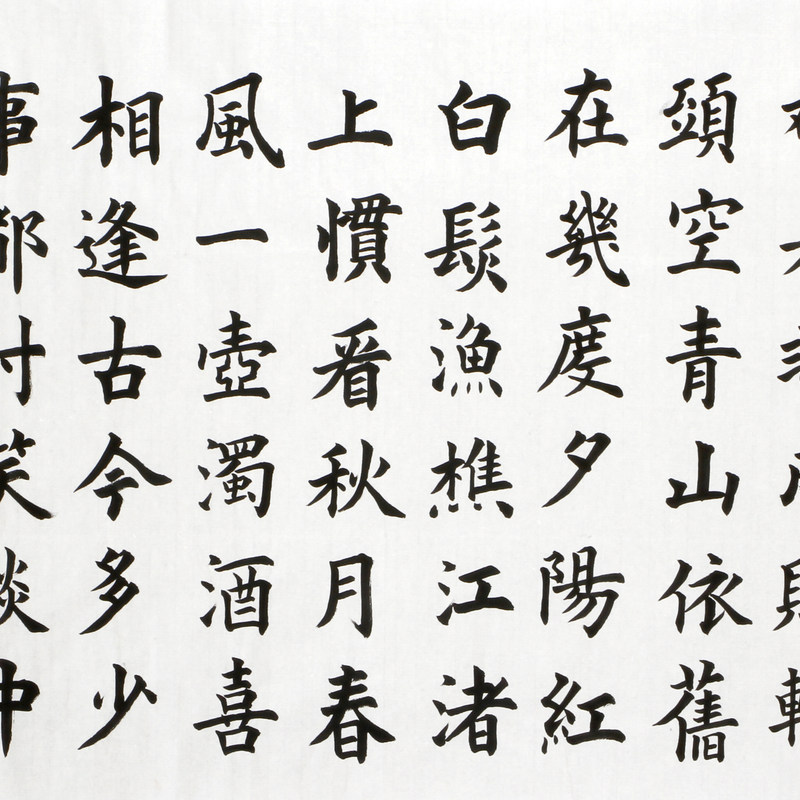 頭空青山依舊
在幾度夕陽紅
白髮漁樵江渚
上慣看秋月春
風一壺濁酒喜
相逢古今多少
事都付笑談中